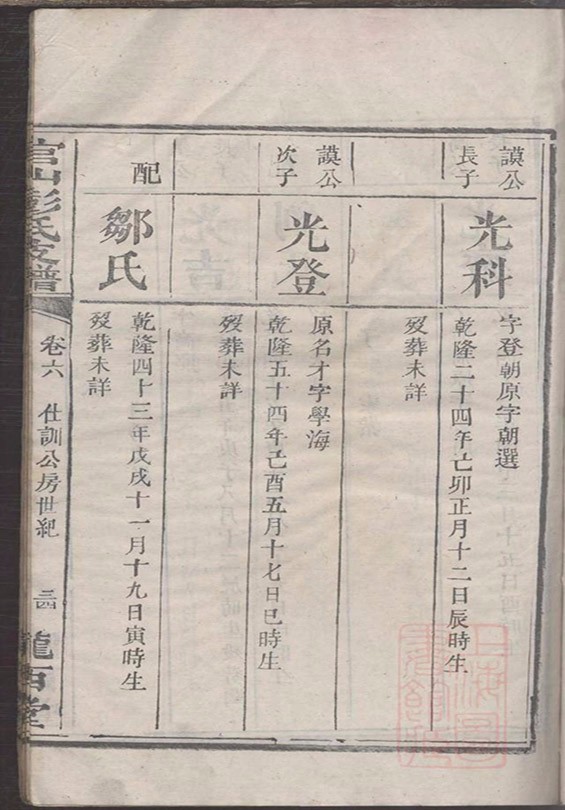 謨公
長子
光科
字登朝原字朝選
乾隆二十四年己卯正月十二日辰時生
歿葬未詳
謨公
次子
光登
原名才字學海
乾隆五十四年己酉五月十七日巳時生
歿葬未詳
配
鄒氏
乾隆四十三年戊戌十一月十九日寅時生
歿葬未詳
官山彭氏支譜
卷六 仕訓公房世紀
三四
龍西堂